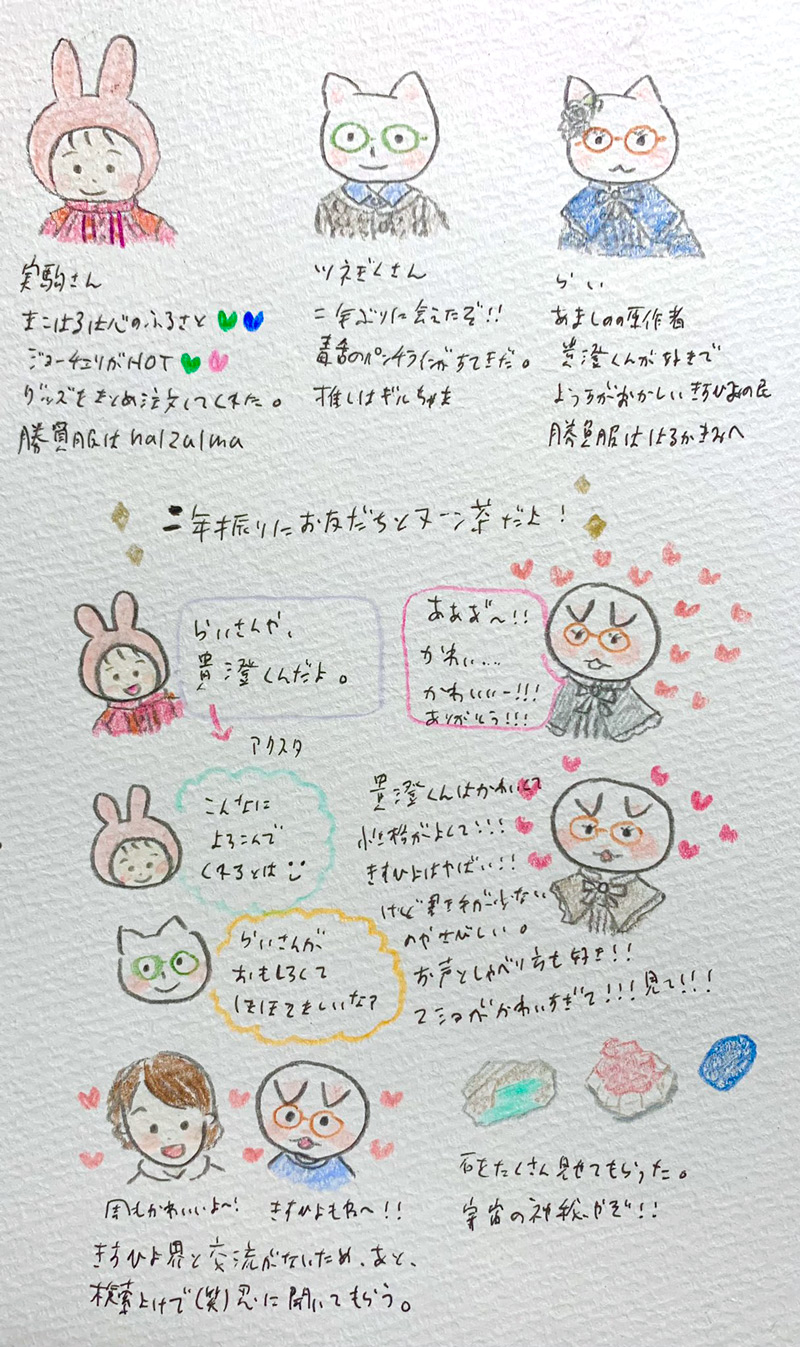 実駒さん
まこはるは心のふるさと
ジョーチェリがHOT
グッズをまとめ注文してくれた。
勝負服はhalzalma
ツネぎくさん
二年ぶりに会えたぞ!!
毒舌のパンチラインがすてきだ。
推しはギルちゃま
らい
あましのの原作者
貴澄くんが好きで
ようすがおかしいきすひよの民
勝負服ははるかきみへ
二年振りにお友だちとヌーン茶だよ!
らいさんや、
貴澄くんだよ。
アクスタ
ああぁ〜!!
かわい...
かわいいー!!!
ありがとう!!!
こんなに
よろこんで
くれるとは
貴澄くんはかわいくて
性格がよくて!!!
きすひよはやばい!!
けど書き手が少ない
のがさびしい。
お声としゃべり方も好き!!
マジョがかわいすぎて!!!見て!!!
らいさんが
おもしろくて
ほほえましいなァ
周もかわいいよ〜!
きすひよも〜!!
きすひよ界と交流がないため、あと、
検索よけで(笑)忍に聞いてもらう。
石をたくさん見せてもらった。
宇宙の神秘だぞ!!